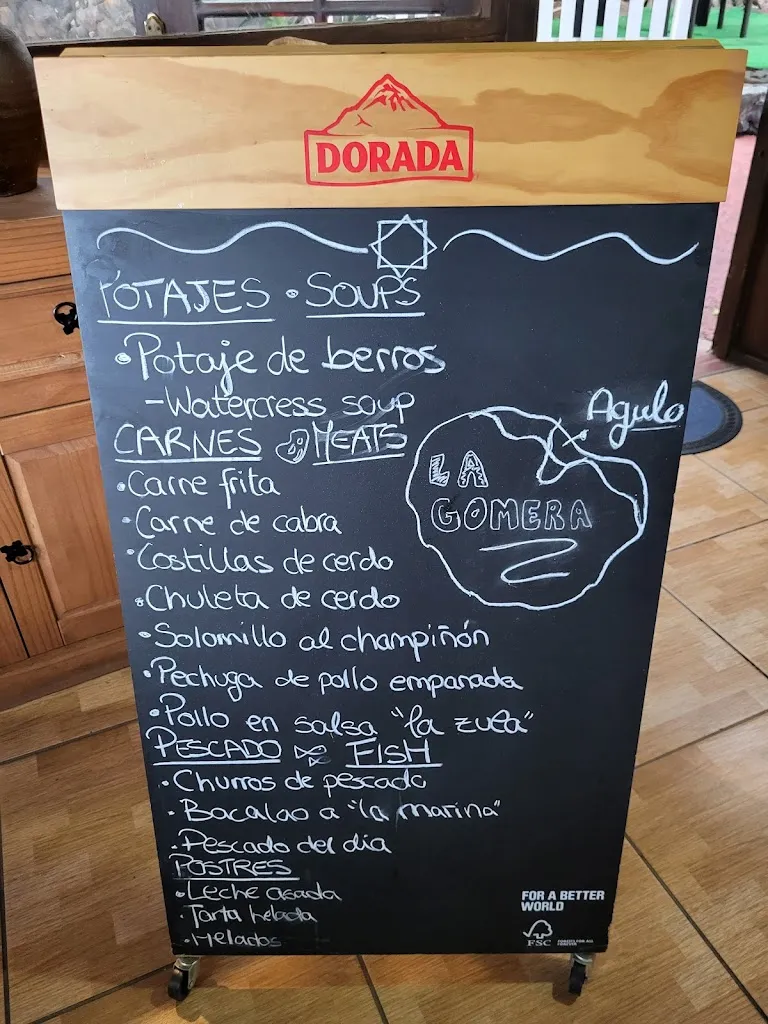 DORADA
POTAJES • SOUPS
• Potaje de berros
- Watercress soup
CARNES MEATS
• Carne frita
• Carne de cabra
• Costillas de cerdo
• Chuleta de cerdo
• Solomillo al champiñón
• Pechuga de pollo empanada
• Pollo en salsa "la zula"
PESCADO FISH
• Churros de pescado
• Bacalao a "la marina"
• Pescado del día
POSTRES
• Leche asada
• Tarta helada
• Helados
Agulo
LA
GOMERA
FOR A BETTER
WORLD
FSC
FORESTS FOR ALL
FOREVER